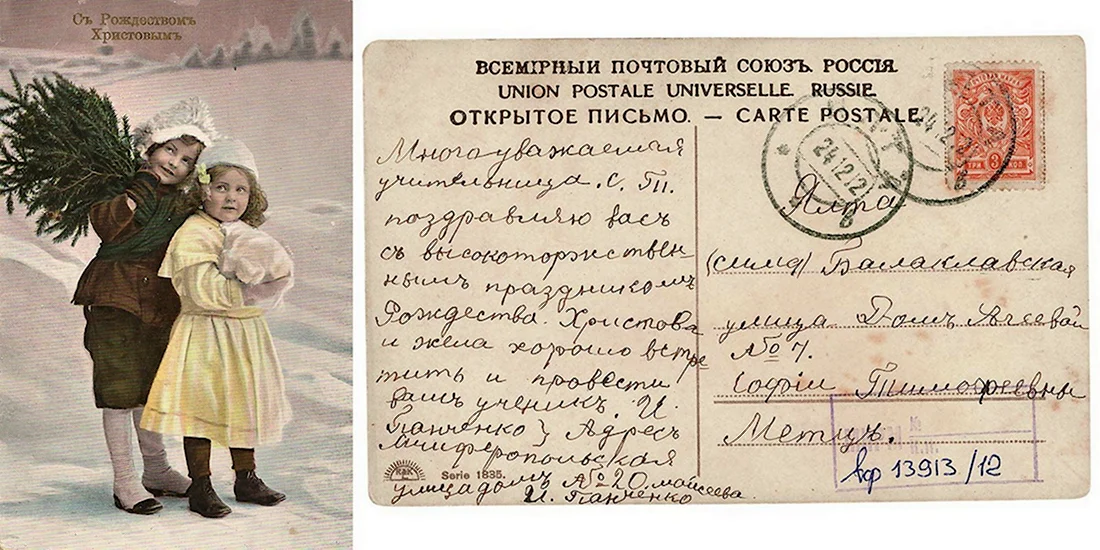 Съ Рождествомъ
Христовымъ
ВСЕМІРНЫЙ ПОЧТОВЫЙ СОЮЗЪ. РОССІЯ.
UNION POSTALE UNIVERSELLE. RUSSIE.
ОТКРЫТОЕ ПИСЬМО. — CARTE POSTALE.
Многоуважаемая
учительница. С. Т.
поздравляю васъ
съ высокоторжествен
нымъ праздникомъ
Рождества. Христова
и жела хорошо встре
тить и провести
вашъ ученикъ. И.
Панченко } Адресъ
Симферопольская
улица домъ № 20. моисеева.
И. Панченко
Serie 1835.
24.12.12
ТРИ 3 КОП.
Ялта
(симф) Балаклавская
улица. Домъ
№ 7.
Софіи Тимофеевны
Метцъ.
№
вф 13913/12